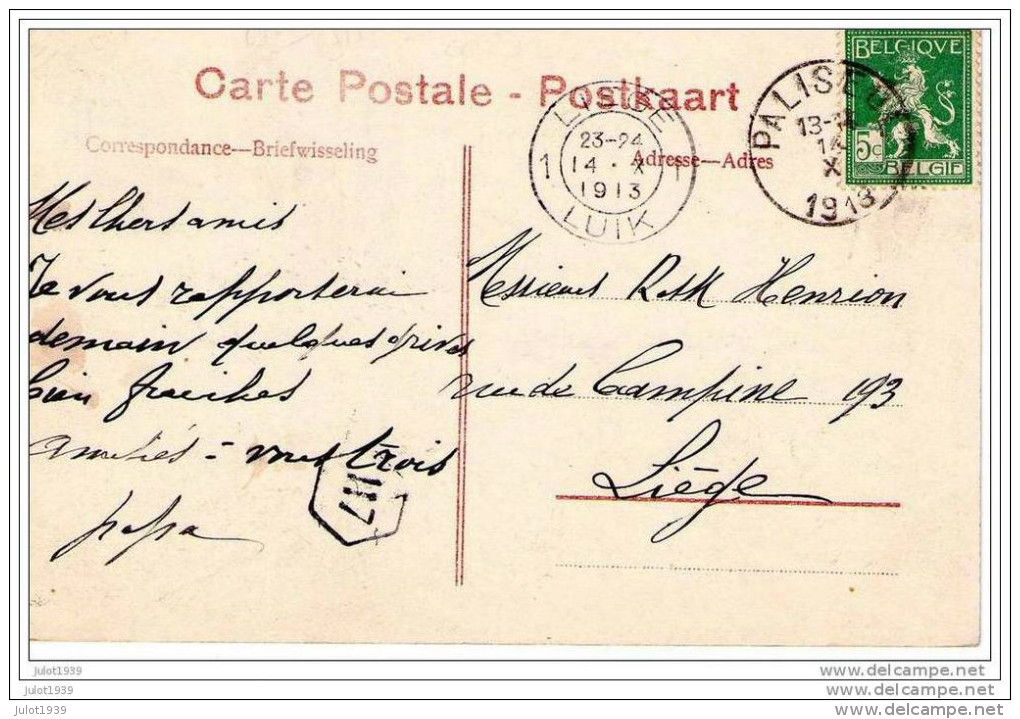 Carte Postale - Postkaart
Correspondance—Briefwisseling
Adresse—Adres
LIEGE
23-24
1 14 · X 1
1913
LUIK
PALISEUL
13-14
14
X
1913
BELGIQVE
5c
BELGIE
Mes chers amis
Je vous rapporterai
demain quelques grives
bien fraiches
amitiés - vous trois
papa
Messieurs R&K Henrion
rue de Campine 193
Liège
julot1939
julot1939
julot1939
delcampe.net
delcampe.net
delcampe.net